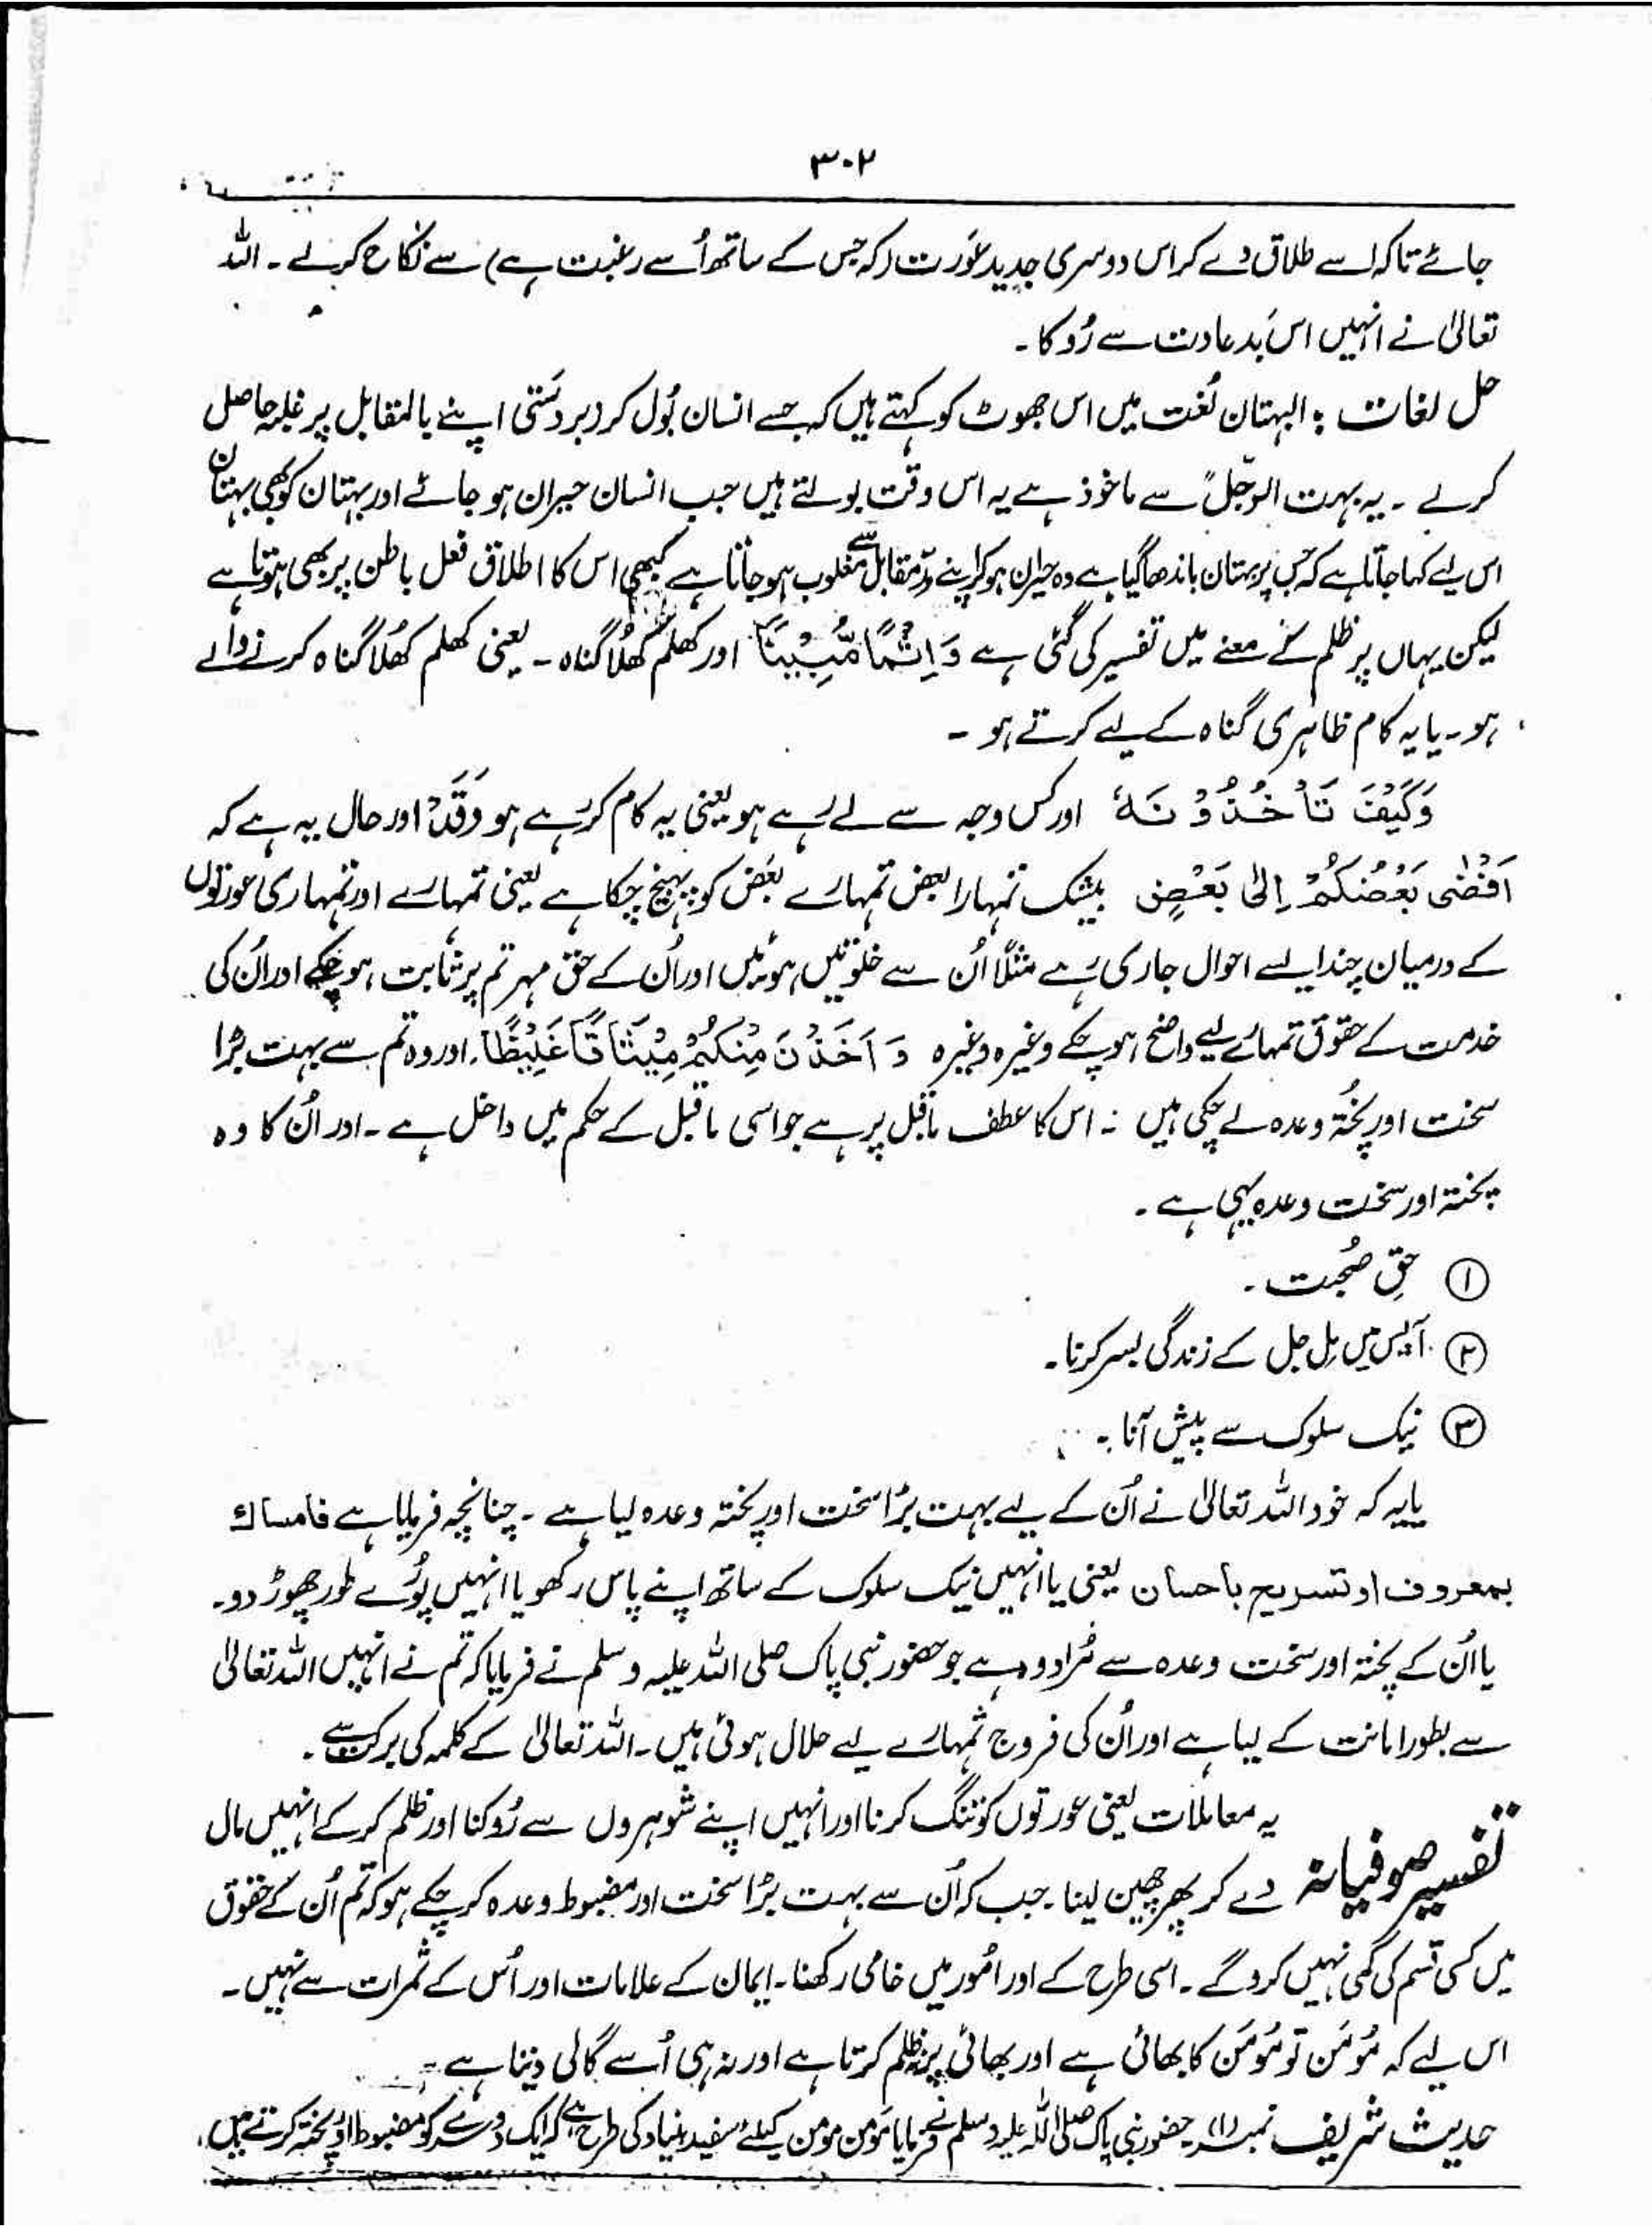 ۳۰۲
جائے تاکہ اسے طلاق دے کر اس دوسری جدید عورت (کہ جس کے ساتھ اُسے رغبت ہے) سے نکاح کر لے ۔ اللہ
تعالیٰ نے انہیں اس بَد عادت سے رُوکا ۔
حل لغات : البہتان لُغت میں اس جھوٹ کو کہتے ہیں کہ جسے انسان بُول کر زبردستی اپنے بالمقابل پر غلبہ حاصل
کر لے ۔ یہ بہت الرجل سے ماخوذ ہے یہ اس وقت بولتے ہیں جب انسان حیران ہو جائے اور بہتان کو بھی بہتان
اس لیے کہا جاتا ہے کہ جس پر بہتان باندھا گیا ہے وہ حیران ہو کر اپنے مدِّمقابل سے مغلوب ہو جاتا ہے کبھی اس کا اطلاق فعل باطن پر بھی ہوتا ہے
لیکن یہاں پر ظلم کے معنے میں تفسیر کی گئی ہے وَاِثْمًا مُّبِیْنًا اور کھلم کھُلا گناہ ۔ یعنی کھلم کھُلا گناہ کرنے والے
ہو ۔ یا یہ کام ظاہری گناہ کے لیے کرتے ہو ۔
وَکَیْفَ تَاْخُذُوْنَہٗ اور کس وجہ سے لے رہے ہو یعنی یہ کام کر رہے ہو وَقَدْ اور حال یہ ہے کہ
اَفْضٰی بَعْضُکُمْ اِلٰی بَعْضٍ بیشک تمہارا بعض تمہارے بعض کو پہنچ چکا ہے یعنی تمہارے اور تمہاری عورتوں
کے درمیان چند ایسے احوال جاری رہے مثلًا اُن سے خلوتیں ہوئیں اور اُن کے حق مہر تم پر ثابت ہو چکے اور اُن کی
خدمت کے حقوق تمہارے لیے واضح ہو چکے وغیرہ وغیرہ وَاَخَذْنَ مِنْکُمْ مِّیْثَاقًا غَلِیْظًا ۔ اور وہ تم سے بہت بڑا
سخت اور پختہ وعدہ لے چکی ہیں : اس کا عطف ماقبل پر ہے جو اسی ماقبل کے حکم میں داخل ہے ۔ اور اُن کا وہ
پختہ اور سخت وعدہ یہی ہے ۔
① حقِ صُحبت ۔
② آپس میں مِل جل کے زندگی بسر کرنا ۔
③ نیک سلوک سے پیش آنا ۔
یا یہ کہ خود اللہ تعالیٰ نے اُن کے لیے بہت بڑا سخت اور پختہ وعدہ لیا ہے ۔ چنانچہ فرمایا ہے فامساك
بمعروف او تسریح باحسان یعنی یا انہیں نیک سلوک کے ساتھ اپنے پاس رکھو یا انہیں پُورے طور چھوڑ دو ۔
یا اُن کے پختہ اور سخت وعدہ سے مُراد وہ ہے جو حضور نبی پاک صلی اللہ علیہ وسلم نے فرمایا کہ تم نے انہیں اللہ تعالیٰ
سے بطور امانت کے لیا ہے اور اُن کی فروج تمہارے لیے حلال ہوئی ہیں ۔ اللہ تعالیٰ کے کلمہ کی برکت سے ۔
تفسیر صوفیانہ یہ معاملات یعنی عورتوں کو تنگ کرنا اور انہیں اپنے شوہروں سے رُوکنا اور ظلم کر کے انہیں مال
دے کر پھر چھین لینا ۔ جب کہ اُن سے بہت بڑا سخت اور مضبوط وعدہ کر چکے ہو کہ تم اُن کے حقوق
میں کسی قسم کی کمی نہیں کرو گے ۔ اسی طرح کے اور امُور میں خامی رکھنا ۔ ایمان کے علامات اور اُس کے ثمرات سے نہیں ۔
اس لیے کہ مُومن تو مُومن کا بھائی ہے اور بھائی پر نہ ظلم کرتا ہے اور نہ ہی اُسے گالی دیتا ہے ۔
حدیث شریف نمبر (۱) ۔ حضور نبی پاک صلی اللہ علیہ وسلم نے فرمایا مومن مومن کیلئے سفید بنیاد کی طرح ہے کہ ایک دوسرے کو مضبوط اور پختہ کرتے ہیں ۔